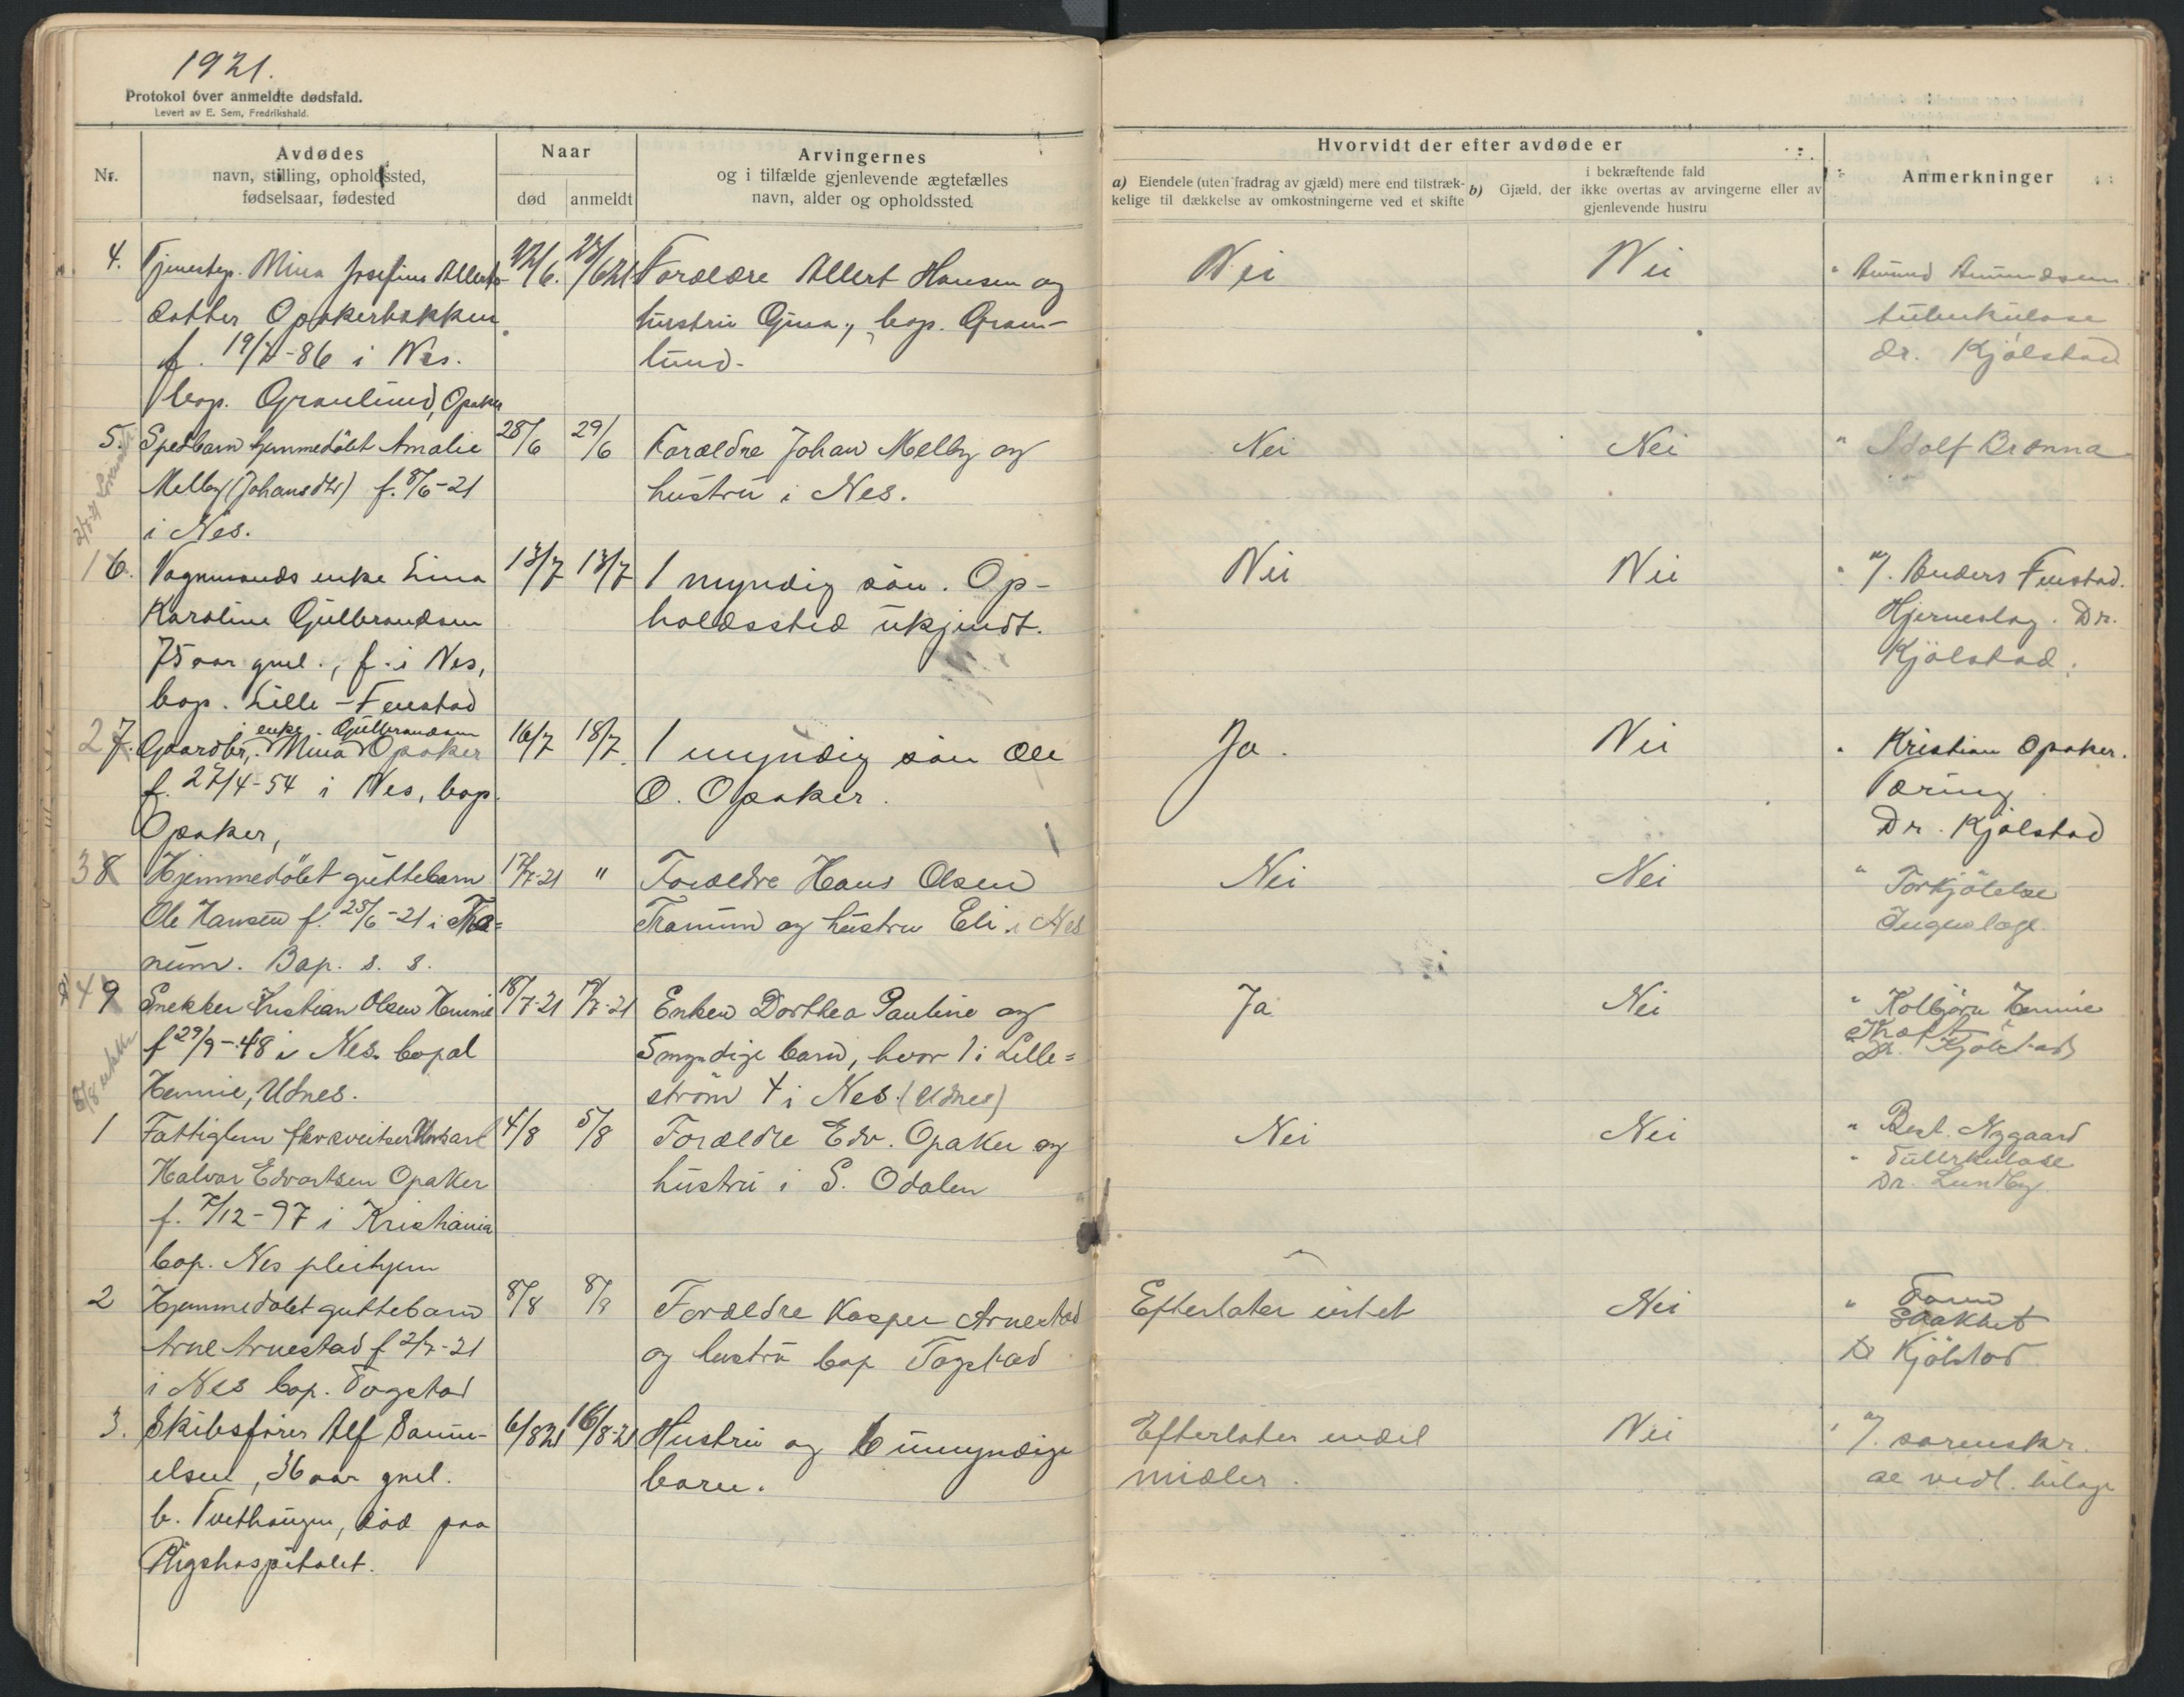 1921.
Protokol over anmeldte dødsfald.
Levert av E. Sem, Fredrikshald.
Nr.
Avdødes
navn, stilling, opholdssted,
fødselsaar, fødested
Naar
død
anmeldt
Arvingernes
og i tilfælde gjenlevende ægtefælles
navn, alder og opholdssted
Hvorvidt der efter avdøde er
a) Eiendele (uten fradrag av gjæld) mere end tilstræk-
kelige til dækkelse av omkostningerne ved et skifte
b) Gjæld, der
i bekræftende fald
ikke overtas av arvingerne eller av
gjenlevende hustru
Anmerkninger
4. Tjenestep. Mina Josefine Allerts-
datter Opakerbakken
f. 19/ -86 i Nes.
bop. Granlund, Opaker
22/6. 27/6 21
Forældre Allert Hansen og
hustru Gina, bop. Gran-
lund.
Nei
Nei
" Amund Amundsen
tuberkulose
dr. Kjølstad
5. Spedbarn hjemmedøbt Amalie
Melby (Johansdtr) f. 8/6-21
i Nes.
28/6 29/6
Forældre Johan Melby og
hustru i Nes.
Nei
Nei
" Adolf Brænna
1 6. Vognmands enke Lina
Karoline Gulbrandsen
75 aar gml., f. i Nes,
bop. Lille-Fenstad
13/7 13/7
1 myndig søn. Op-
holdssted ukjendt.
Nei
Nei
" v/ Anders Fenstad.
Hjerneslag. Dr.
Kjølstad.
2 7. Gaardbr. enke Mina Gulbrandsen Opaker
f. 27/4-54 i Nes, bop.
Opaker,
16/7 18/7
1 myndig søn Ole
O. Opaker.
Ja.
Nei
" Kristian Opaker.
Tæring.
Dr. Kjølstad
3 8 Hjemmedøbt guttebarn
Ole Hansen f. 25/6-21 i Tra=
num. Bop. s. s.
17/7-21 "
Forældre Hans Olsen
Tranum og hustru Eli i Nes
Nei
Nei
" Forkjølelse
Ingen læge.
4 9 Snekker Kristian Olsen Hennie
f 29/9-48 i Nes. bopal
Hennie, Udnes.
18/7-21 19/7-21
Enken Dorthea Pauline og
5 myndige barn, hvor 1 i Lille=
strøm 4 i Nes. (Udnes)
Ja
Nei
" Kolbjørn Hennie
Kræft
Dr. Kjølstad
1 Fattiglem
Halvor Edvartsen Opaker
f. 7/12-97 i Kristiania
bop. Nes pleihjem
4/8 5/8
Forældre Edv. Opaker og
hustru i S. Odalen
Nei
Nei
" Best. Nygaard
" Tuberkulose
Dr. Lundby
2 Hjemmedøbt guttebarn
Arne Arnestad f 2/7-21
i Nes bop. Fogstad
8/8 8/8
Forældre Kasper Arnestad
og hustru bop Fogstad
Efterlater intet
Nei
" Faren
Svakhet
Dr Kjølstad
3. Skibsfører Alf Samu-
elsen, 36 aar gml.
b. Tvethaugen, død paa
Rigshospitalet.
6/8 21 16/8-21
Hustru og 6 umyndige
barn.
Efterlater endel
midler.
Nei
" v/ sorenskr.
vedl. bilag